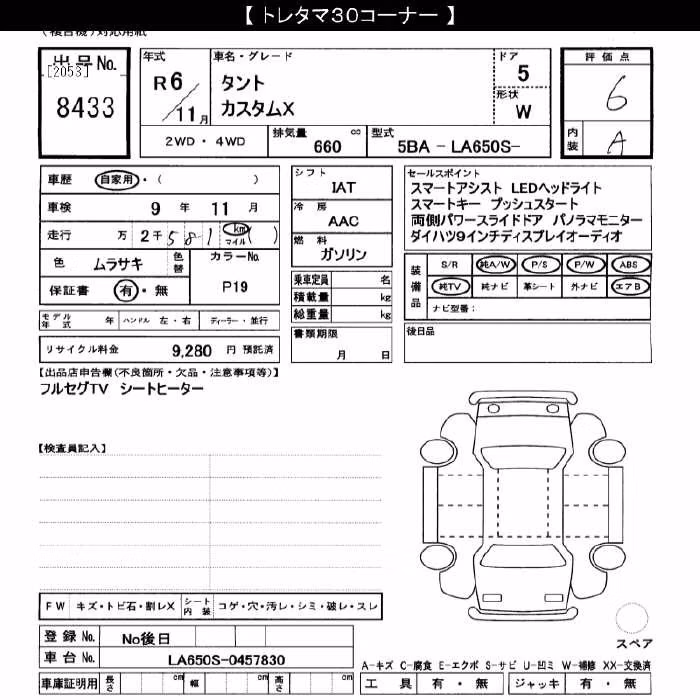 【 トレタマ３０コーナー 】
出品No.
[2053]
8433
年式
R6
11月
車名・グレード
タント
カスタムX
ドア
5
形状
W
2WD・4WD
排気量
660
cc
型式
5BA － LA650S-
評価点
6
内装
A
車歴 自家用・( )
車検 9 年 11 月
走行 万 2千581 km マイル ( )
色 ムラサキ 色替
カラーNo.
P19
保証書 有・無
モデル年式 年 ハンドル 左・右 ディーラー・並行
リサイクル料金 9,280 円 預託済
シフト
IAT
冷房
AAC
燃料
ガソリン
乗車定員 名
積載量 kg
総重量 kg
書類期限
月 日
セールスポイント
スマートアシスト LEDヘッドライト
スマートキー プッシュスタート
両側パワースライドドア パノラマモニター
ダイハツ9インチディスプレイオーディオ
装備品
S/R 純A/W P/S P/W ABS
純TV 純ナビ 革シート 外ナビ エアB
ナビ型番:
後日品
【出品店申告欄(不良箇所・欠品・注意事項等)】
フルセグTV シートヒーター
【検査員記入】
FW キズ・トビ石・割レX シート内装 コゲ・穴・汚レ・シミ・破レ・スレ
登録No. No後日
車台No. LA650S-0457830
車庫証明用 長さ cm 幅 cm 高さ cm
スペア
A-キズ C-腐食 E-エクボ S-サビ U-凹ミ W-補修 XX-交換済
工具 有・無 ジャッキ 有・無